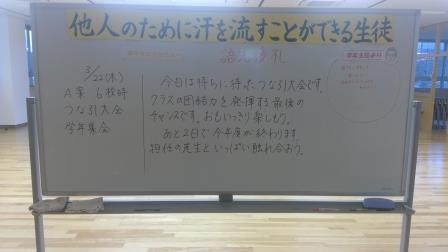 他人のために汗を流すことができる生徒
3/22(木)
A案 6校時
つな引大会
学年集会
今日は待ちに待ったつな引大会です。
クラスの団結力を発揮する最後の
チャンスです。おもいっきり楽しもう。
あと2日で今年度が終わります。
担任の先生といっぱい触れ合おう。